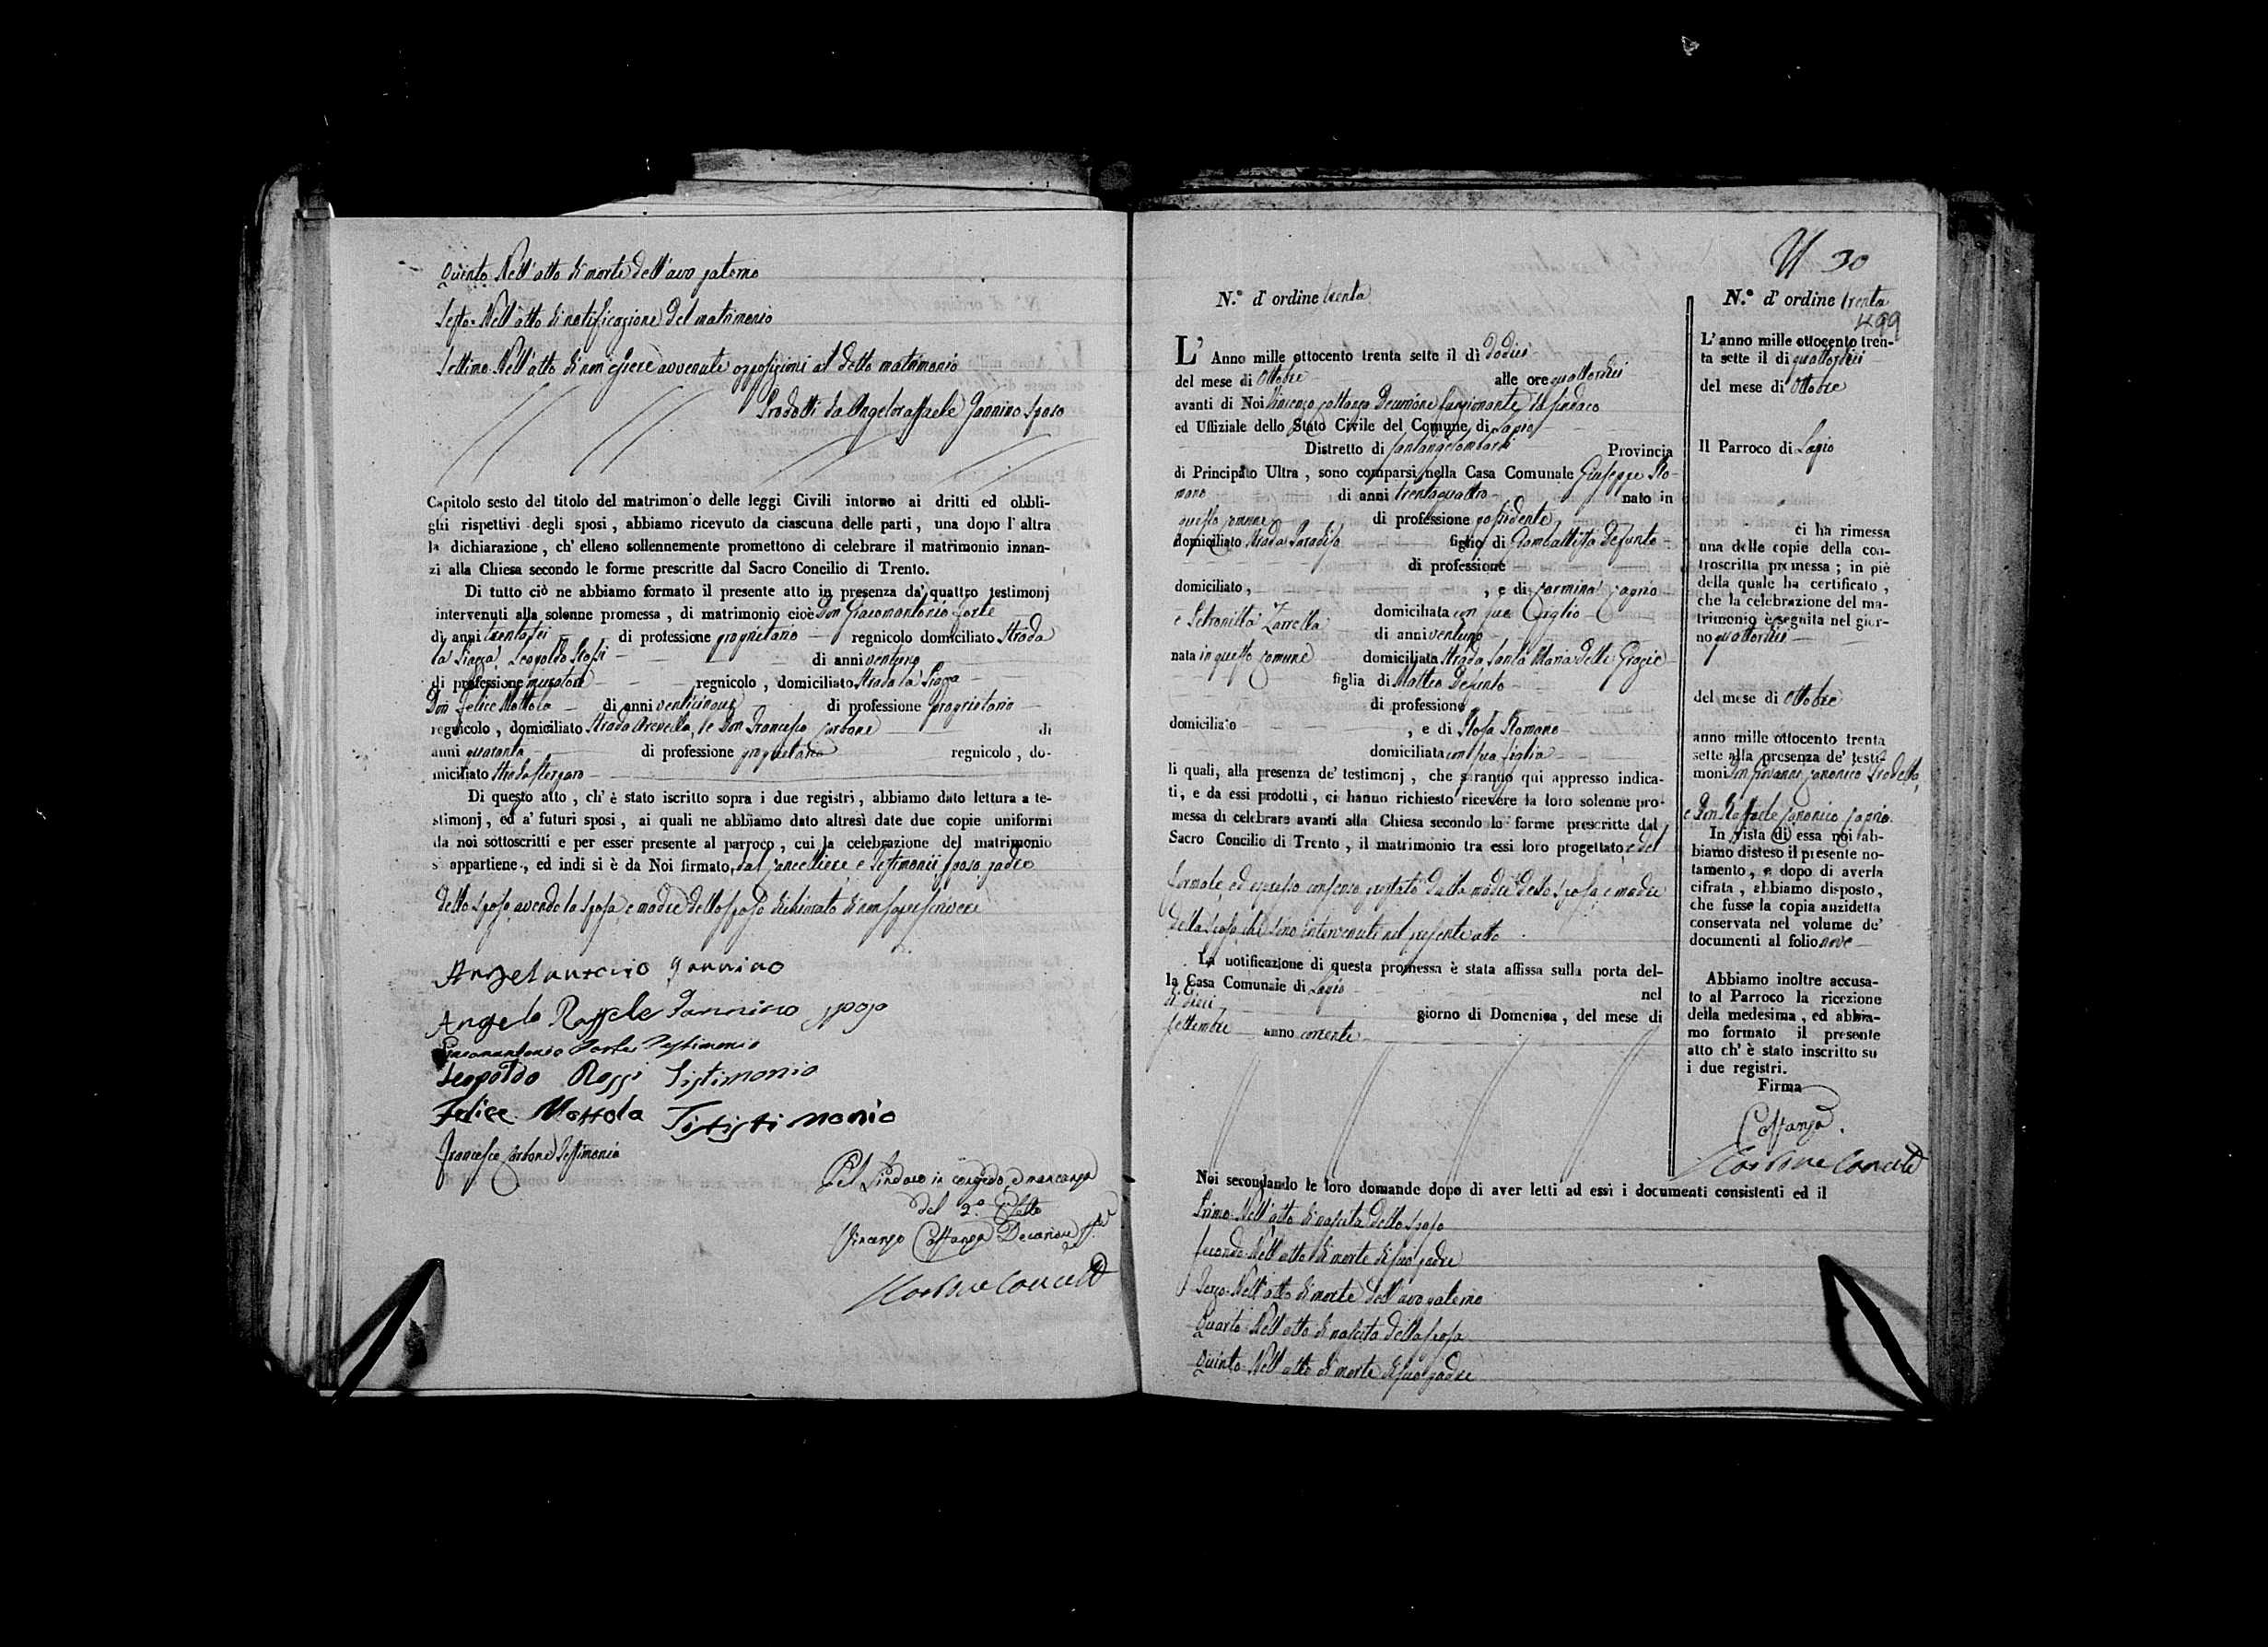 Quinto. Nell'atto di morte dell'avo paterno
Sesto. Nell'atto di notificazione del matrimonio
Settimo. Nell'atto di non essere avvenute opposizioni al detto matrimonio
Prodotti da Angeloraffaele Jannino sposo
Capitolo sesto del titolo del matrimonio delle leggi Civili intorno ai dritti ed obbli-
ghi rispettivi degli sposi, abbiamo ricevuto da ciascuna delle parti, una dopo l'altra
la dichiarazione, ch'elleno sollennemente promettono di celebrare il matrimonio innan-
zi alla Chiesa secondo le forme prescritte dal Sacro Concilio di Trento.
Di tutto ciò ne abbiamo formato il presente atto in presenza da' quattro testimonj
intervenuti alla solenne promessa, di matrimonio cioè Don Giacomantonio Forte
di anni trentasei di professione proprietario regnicolo domiciliato Strada
la Piazza, Leopoldo Rossi di anni ventuno
di professione muratore regnicolo, domiciliato Strada la Piazza
Don Felice Mottola di anni venticinque di professione proprietario
regnicolo, domiciliato Strada , e Don Francesco Carbone di
anni quaranta di professione proprietario regnicolo, do-
miciliato Strada
Di questo atto, ch'è stato iscritto sopra i due registri, abbiamo dato lettura a te-
stimonj, ed a' futuri sposi, ai quali ne abbiamo dato altresì date due copie uniformi
da noi sottoscritti e per esser presente al parroco, cui la celebrazione del matrimonio
s'appartiene, ed indi si è da Noi firmato, dal Cancelliere e Testimonii, sposo, padre
dello sposo, avendo la sposa, e madre dello sposo dichiarato di non saper scrivere
Angelantonio Jannino
Angelo Raffele Jannino sposo
Giacomantonio Forte Testimonio
Leopoldo Rossi Tistimonio
Felice Mottola Tististimonio
Francesco Carbone Testimonio
Pel Sindaco in congedo, e mancanza
del 2.º Eletto
Vincenzo Costanza Decurione
Carbone Cancell.
N 30
N.º d'ordine trenta
L'Anno mille ottocento trenta sette il dì dodici
del mese di Ottobre alle ore quattordici
avanti di Noi Vincenzo Costanza Decurione funzionante da Sindaco
ed Uffiziale dello Stato Civile del Comune di Lapio
Distretto di Santangelombardi Provincia
di Principato Ultra, sono comparsi nella Casa Comunale Giuseppe Ro-
mano di anni trentaquattro nato in
questo comune di professione possidente
domiciliato Strada Paradiso figlio di Giambattista defunto
di professione
domiciliato, , e di Carmina Caprio
domiciliata con suo figlio
e Petronilla Zarrella di anni ventuno
nata in questo comune domiciliata Strada Santa Maria delle Grazie
figlia di Matteo defunto
di professione
domiciliato , e di Rosa Romano
domiciliata con sua figlia
li quali, alla presenza de' testimonj, che saranno qui appresso indica-
ti, e da essi prodotti, ci hanno richiesto ricevere la loro solenne pro-
messa di celebrare avanti alla Chiesa secondo le forme prescritte dal
Sacro Concilio di Trento, il matrimonio tra essi loro progettato, e del
formale, ed espresso consenso prestato dalla madre dello sposo, e madre
della sposa, che sono intervenute nel presente atto
La notificazione di questa promessa è stata affissa sulla porta del-
la Casa Comunale di Lapio nel
dì dieci giorno di Domenica, del mese di
settembre anno corrente
Noi secondando le loro domande dopo di aver letti ad essi i documenti consistenti ed il
Primo. Nell'atto di nascita dello sposo
Secondo. Nell'atto di morte di suo padre
Terzo. Nell'atto di morte dell'avo paterno
Quarto. Nell'atto di nascita della sposa
Quinto. Nell'atto di morte di suo padre
N.º d'ordine trenta
499
L'anno mille ottocento tren-
ta sette il dì quattordici
del mese di Ottobre
Il Parroco di Lapio
ci ha rimessa
una delle copie della con-
troscritta promessa; in piè
della quale ha certificato,
che la celebrazione del ma-
trimonio è seguita nel gior-
no quattordici
del mese di Ottobre
anno mille ottocento trenta
sette alla presenza de' testi-
moni Don Giovanni Canonico
e Don Raffaele Canonico Caprio.
In vista di essa noi ab-
biamo disteso il presente no-
tamento, e dopo di averla
cifrata, abbiamo disposto,
che fusse la copia anzidetta
conservata nel volume de'
documenti al folio nove
Abbiamo inoltre accusa-
to al Parroco la ricezione
della medesima, ed abbia-
mo formato il presente
atto ch'è stato inscritto su
i due registri.
Firma
Costanza.
Carbone Cancell.